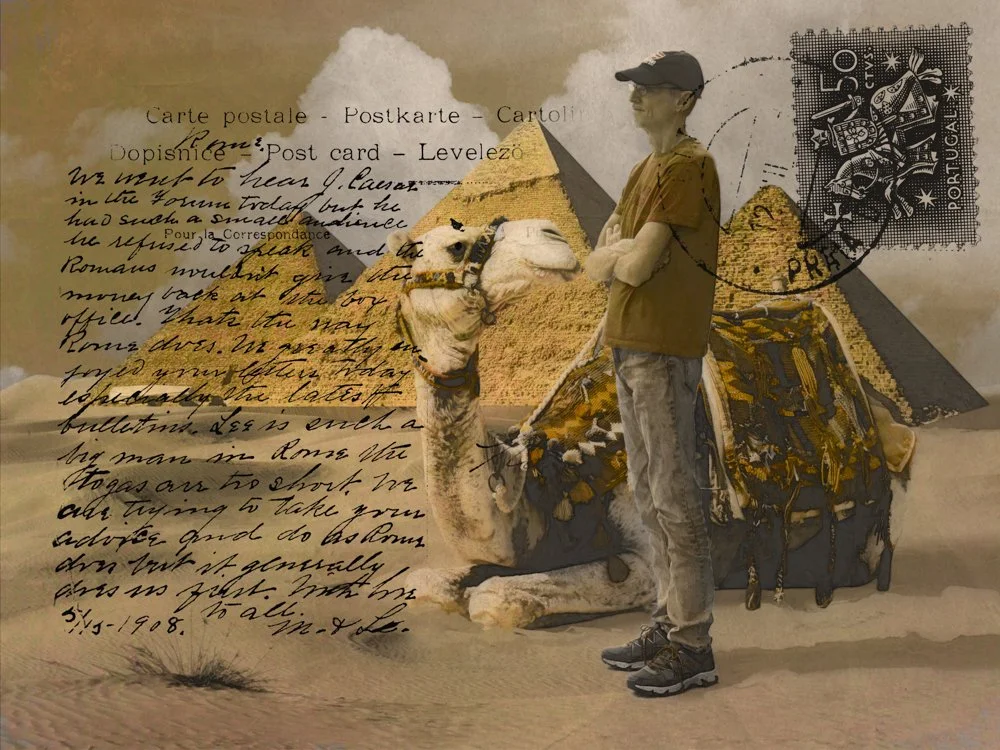 Carte postale - Postkarte - Cartoli
Rome.
Dopisnice - Post card - Levelező
We went to hear J. Caesar
in the Forum today but he
had such a small audience
Pour la Correspondance
he refused to speak and the
Romans wouldn't give the
money back at the box
office. Thats the way
Rome does. We greatly en
joyed your letters today
especially the latest
bulletins. Lee is such a
big man in Rome the
togas are too short. We
are trying to take your
advice and do as Rome
does but it generally
does us first. With love
to all.
1908. M. & Le.
50
CTVS
PORTUGAL